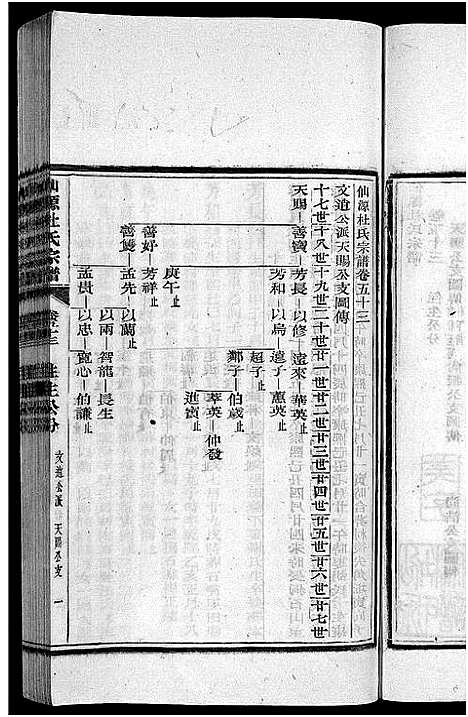 仙源杜氏宗譜卷五十三
文道公派天賜公支圖傳
十七世十八世十九世二十世廿一世廿二世廿三世廿四世廿五世廿六世廿七世
天賜—善寶—芳長—以修—遠來—華英止
芳和—以烏—遠子—蕙英止
超子止
鄒子—伯歲止
萃英—仲發止
進寶止
善好—芳祥止
庚午止
善雙—孟先—以蘭止
以兩—智龍—長生
孟貴—以忠—寬心—伯謙止
仙源杜氏宗譜
文道公派 天賜公支 一